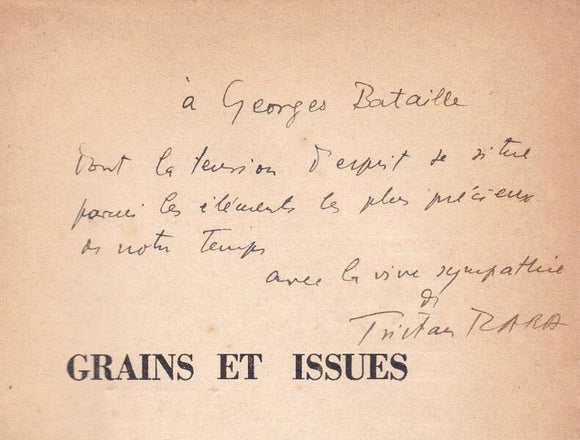 à Georges Bataille
dont la tension d'esprit se situe
parmi les éléments les plus précieux
de notre temps
avec la vive sympathie
de
Tristan TZARA
GRAINS ET ISSUES